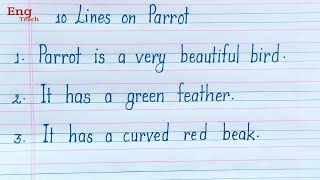 Eng
Teach
10 Lines on Parrot
1. Parrot is a very beautiful bird.
2. It has a green feather.
3. It has a curved red beak.